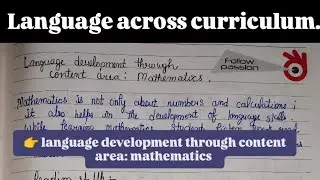 Language across curriculum.
Language development through
content area: Mathematics.
Follow
passion
Mathematics is not only about numbers and calculations;
it also helps in the development of language skills.
While learning mathematics, students
👉 language development through content
area: mathematics